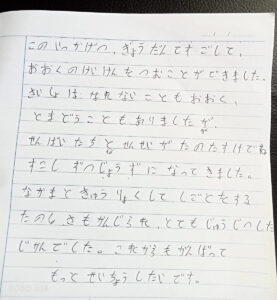 このじっかげつ、ぎょうだんですごして、
おおくのけいけんをつむことができました。
さいしょは、なれないこともおおく、
とまどうこともありましたが、
せんぱいたちとせんせいがたのたすけでね
すこしずつじょうずになってきました。
なかまときょうりょくしてしごとをする
たのしさもかんじられ、とてもじゅうじつした
じかんでした。これからもがんばって
もっとせいちょうしたいです。